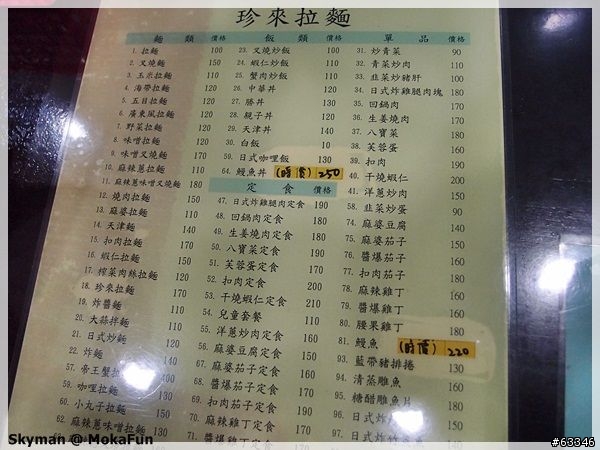 珍來拉麵
麵 類 價格
1. 拉麵 100
2. 叉燒麵 150
3. 玉米拉麵 110
4. 海帶拉麵 120
5. 五目拉麵 120
6. 廣東風拉麵 120
7. 野菜拉麵 120
8. 味噌拉麵 120
9. 味噌叉燒麵 170
10. 麻辣蔥拉麵 110
11. 麻辣蔥味噌叉燒麵 180
12. 燒肉拉麵 150
13. 麻婆拉麵 110
14. 天津麵 120
15. 扣肉拉麵 170
16. 蝦仁拉麵 150
17. 榨菜肉絲拉麵 120
18. 珍來拉麵 170
19. 炸醬麵 110
20. 大蒜拌麵 110
21. 日式炒麵
22. 炸麵
57. 帝王蟹拉
59. 咖哩拉麵
60. 小丸子拉麵
62. 麻辣蔥味噌拉麵
飯 類 價格
23. 叉燒炒飯 100
24. 蝦仁炒飯 110
25. 蟹肉炒飯 110
26. 中華丼 120
27. 勝丼 130
28. 親子丼 120
29. 天津丼 140
30. 白飯 10
59. 日式咖哩飯 130
64. 鰻魚丼 (時價) 250
定 食 價格
47. 日式炸雞腿肉定食 190
48. 回鍋肉定食 180
49. 生姜燒肉定食 180
50. 八寶菜定食 190
51. 芙蓉蛋定食 170
52. 扣肉定食 200
53. 干燒蝦仁定食 210
54. 兒童套餐 110
55. 洋蔥炒肉定食 160
56. 麻婆豆腐定食 150
67. 麻婆茄子定食 170
68. 醬爆茄子定食 170
69. 扣肉茄子定食 190
70. 麻辣雞丁定食
71. 醬爆雞丁定食
單 品 價格
31. 炒青菜 90
32. 青菜炒肉 110
33. 韭菜炒豬肝 110
34. 日式炸雞腿肉塊 180
35. 回鍋肉 160
36. 生姜燒肉 170
37. 八寶菜 180
38. 芙蓉蛋 160
39. 扣肉 190
40. 干燒蝦 200
41. 洋蔥炒肉 150
58. 韭菜炒蛋 90
74. 麻婆豆腐 140
75. 麻婆茄子 150
76. 醬爆茄子 160
77. 扣肉茄子 180
78. 麻辣雞丁 160
79. 醬爆雞丁 160
80. 腰果雞丁 180
81. 鰻魚 (時價) 220
93. 藍帶豬排捲 130
94. 清蒸鵰魚 160
95. 糖醋鵰魚片 160
96. 日式炸
97. 日式炸竹
Skyman @ MokaFun
#63346